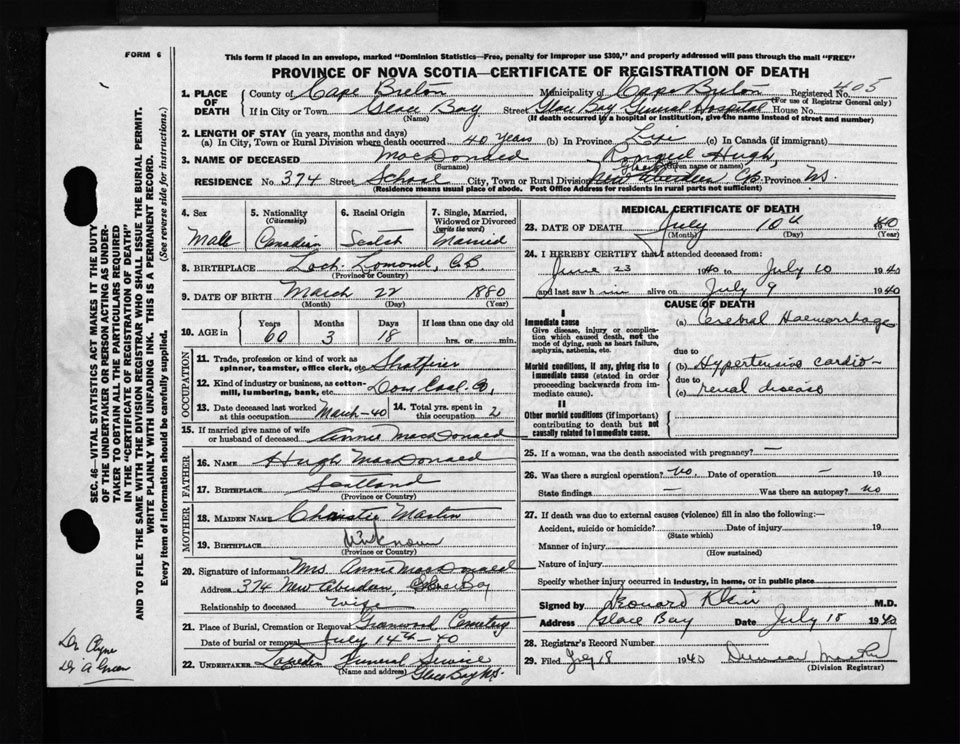 FORM 6
This form if placed in an envelope, marked "Dominion Statistics—Free, penalty for improper use $300," and properly addressed will pass through the mail "FREE"
PROVINCE OF NOVA SCOTIA—CERTIFICATE OF REGISTRATION OF DEATH
1. PLACE OF DEATH County of Cape Breton Municipality of Cape Breton Registered No. 405
(For use of Registrar General only)
If in City or Town Glace Bay (Name) Street Glace Bay General Hospital House No.
(If death occurred in a hospital or institution, give the name instead of street and number)
2. LENGTH OF STAY (in years, months and days)
(a) In City, Town or Rural Division where death occurred 40 years (b) In Province Life (c) In Canada (if immigrant)
3. NAME OF DECEASED MacDonald (Surname) Hugh, (Given or Christian name or names)
RESIDENCE No. 374 Street School City, Town or Rural Division New Aberdeen C.B. Province N.S.
(Residence means usual place of abode. Post Office Address for residents in rural parts not sufficient)
4. Sex Male
5. Nationality (Citizenship) Canadian
6. Racial Origin Scotch
7. Single, Married, Widowed or Divorced (write the word) Married
8. BIRTHPLACE Loch Lomond, C.B.
(Province or Country)
9. DATE OF BIRTH March 22 1880
(Month) (Day) (Year)
10. AGE in Years 60 Months 3 Days 18 If less than one day old hrs. or min.
OCCUPATION
11. Trade, profession or kind of work as spinner, teamster, office clerk, etc. Shotfirer
12. Kind of industry or business, as cotton-mill, lumbering, bank, etc. Dom. Coal. Co,
13. Date deceased last worked at this occupation March-40 14. Total yrs. spent in this occupation 2
15. If married give name of wife or husband of deceased Annie MacDonald
FATHER
16. NAME Hugh MacDonald
17. BIRTHPLACE Scotland
(Province or Country)
MOTHER
18. MAIDEN NAME Christie Martin
19. BIRTHPLACE Unknown
(Province or Country)
20. Signature of informant Mrs. Annie MacDonald
Address 374 New Aberdeen, Glace Bay
Relationship to deceased wife
21. Place of Burial, Cremation or Removal Greenwood Cemetery
Date of burial or removal July 14th-40
22. UNDERTAKER Funeral Service
(Name and address) Glace Bay N.S.
MEDICAL CERTIFICATE OF DEATH
23. DATE OF DEATH July 10th 1940
(Month) (Day) (Year)
24. I HEREBY CERTIFY that I attended deceased from:
June 23 1940 to July 10 1940
and last saw him alive on July 9 1940
CAUSE OF DEATH
I
Immediate cause
Give disease, injury or complication which caused death, not the mode of dying, such as heart failure, asphyxia, asthenia, etc.
(a) Cerebral Haemorrhage
due to
Morbid conditions, if any, giving rise to immediate cause (stated in order proceeding backwards from immediate cause).
(b) Hypertensive cardio-
due to
(c) renal disease
II
Other morbid conditions (if important) contributing to death but not causally related to immediate cause.
25. If a woman, was the death associated with pregnancy? —
26. Was there a surgical operation? no. Date of operation — 19
State findings — Was there an autopsy? no
27. If death was due to external causes (violence) fill in also the following:—
Accident, suicide or homicide? Date of injury 19
(State which)
Manner of injury
(How sustained)
Nature of injury
Specify whether injury occurred in industry, in home, or in public place
Signed by Leonard Klein M.D.
Address Glace Bay Date July 18 1940
28. Registrar's Record Number
29. Filed July 18 1940 Duncan
(Division Registrar)
SEC. 46—VITAL STATISTICS ACT MAKES IT THE DUTY
OF THE UNDERTAKER OR PERSON ACTING AS UNDER-
TAKER TO OBTAIN ALL THE PARTICULARS REQUIRED
IN THE "CERTIFICATE OF REGISTRATION OF DEATH"
AND TO FILE THE SAME WITH THE DIVISION REGISTRAR WHO SHALL ISSUE THE BURIAL PERMIT.
WRITE PLAINLY WITH UNFADING INK. THIS IS A PERMANENT RECORD.
Every item of information should be carefully supplied. (See reverse side for instructions.)
Dr
Dr A Green